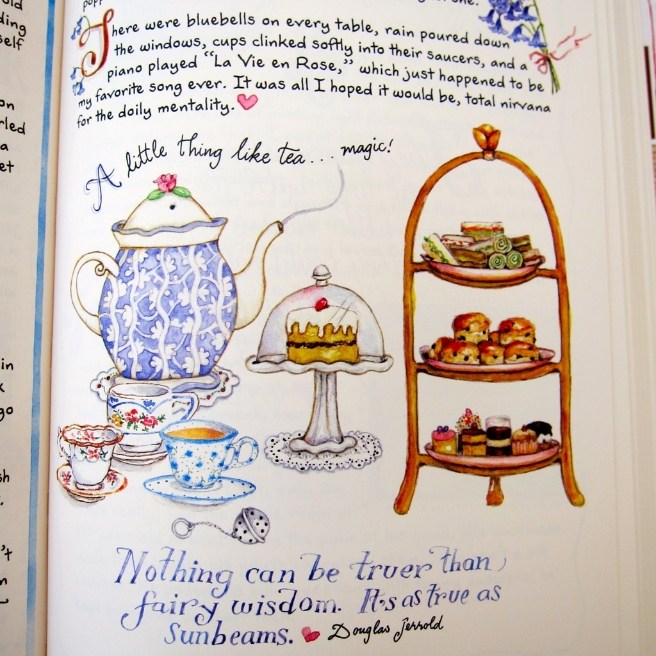 one.
There were bluebells on every table, rain poured down
the windows, cups clinked softly into their saucers, and a
piano played "La Vie en Rose," which just happened to be
my favorite song ever. It was all I hoped it would be, total nirvana
for the doily mentality.
A little thing like tea... magic!
Nothing can be truer than
fairy wisdom. It's as true as
sunbeams. Douglas Jerrold